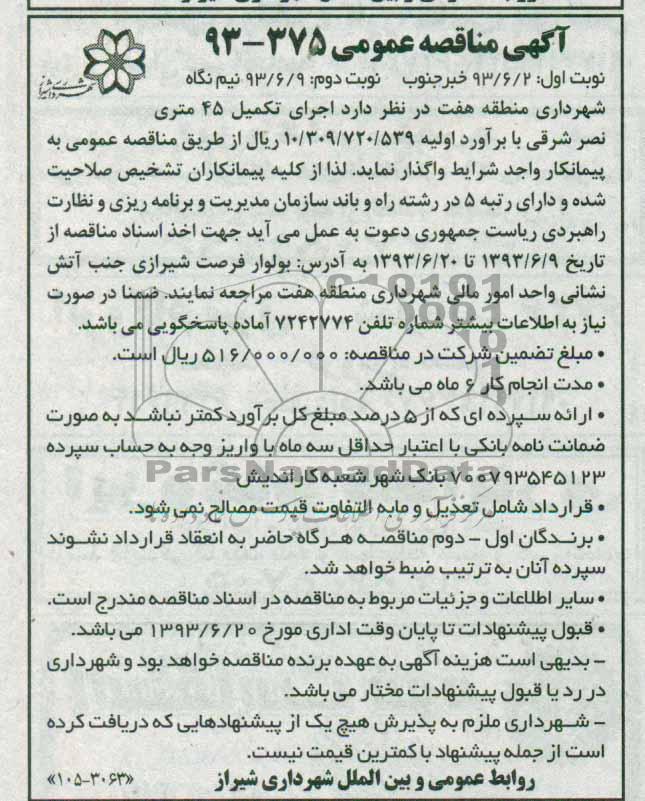 آگهی مناقصه عمومی ۳۷۵-۹۳
شهرداری شیراز
نوبت اول: ۹۳/۶/۲ خبرجنوب نوبت دوم: ۹۳/۶/۹ نیم نگاه
شهرداری منطقه هفت در نظر دارد اجرای تکمیل ۴۵ متری
نصر شرقی با برآورد اولیه ۱۰/۳۰۹/۷۲۰/۵۳۹ ریال از طریق مناقصه عمومی به
پیمانکار واجد شرایط واگذار نماید. لذا از کلیه پیمانکاران تشخیص صلاحیت
شده و دارای رتبه ۵ در رشته راه و باند سازمان مدیریت و برنامه ریزی و نظارت
راهبردی ریاست جمهوری دعوت به عمل می آید جهت اخذ اسناد مناقصه از
تاریخ ۱۳۹۳/۶/۹ تا ۱۳۹۳/۶/۲۰ به آدرس: بولوار فرصت شیرازی جنب آتش
نشانی واحد امور مالی شهرداری منطقه هفت مراجعه نمایند. ضمنا در صورت
نیاز به اطلاعات بیشتر شماره تلفن ۷۲۴۲۷۷۴ آماده پاسخگویی می باشد.
• مبلغ تضمین شرکت در مناقصه: ۵۱۶/۰۰۰/۰۰۰ ریال است.
• مدت انجام کار ۶ ماه می باشد.
• ارائه سپرده ای که از ۵ درصد مبلغ کل برآورد کمتر نباشد به صورت
ضمانت نامه بانکی با اعتبار حداقل سه ماه با واریز وجه به حساب سپرده
۷۰۰۷۹۳۵۴۵۱۲۳ بانک شهر شعبه کاراندیش
ParsNamadData
• قرارداد شامل تعدیل و مابه التفاوت قیمت مصالح نمی شود.
• برندگان اول - دوم مناقصه هرگاه حاضر به انعقاد قرارداد نشوند
سپرده آنان به ترتیب ضبط خواهد شد.
• سایر اطلاعات و جزئیات مربوط به مناقصه در اسناد مناقصه مندرج است.
• قبول پیشنهادات تا پایان وقت اداری مورخ ۱۳۹۳/۶/۲۰ می باشد.
- بدیهی است هزینه آگهی به عهده برنده مناقصه خواهد بود و شهرداری
در رد یا قبول پیشنهادات مختار می باشد.
- شهرداری ملزم به پذیرش هیچ یک از پیشنهادهایی که دریافت کرده
است از جمله پیشنهاد با کمترین قیمت نیست.
روابط عمومی و بین الملل شهرداری شیراز «۱۰۵-۳۰۶۳»